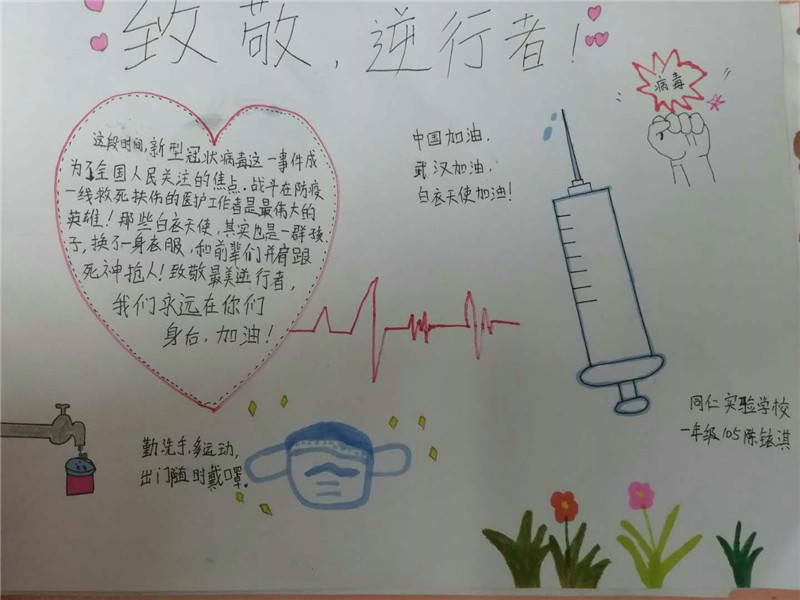 致敬，逆行者！
病毒
这段时间，新型冠状病毒这一事件成
为了全国人民关注的焦点．战斗在防疫
一线救死扶伤的医护工作者是最伟大的
英雄！那些白衣天使，其实也是一群孩
子，换了一身衣服，和前辈们并肩跟
死神抢人！致敬最美逆行者，
我们永远在你们
身后，加油！
中国加油．
武汉加油．
白衣天使加油！
勤洗手，多运动，
出门随时戴口罩．
同仁实验学校
一年级105陈铱淇